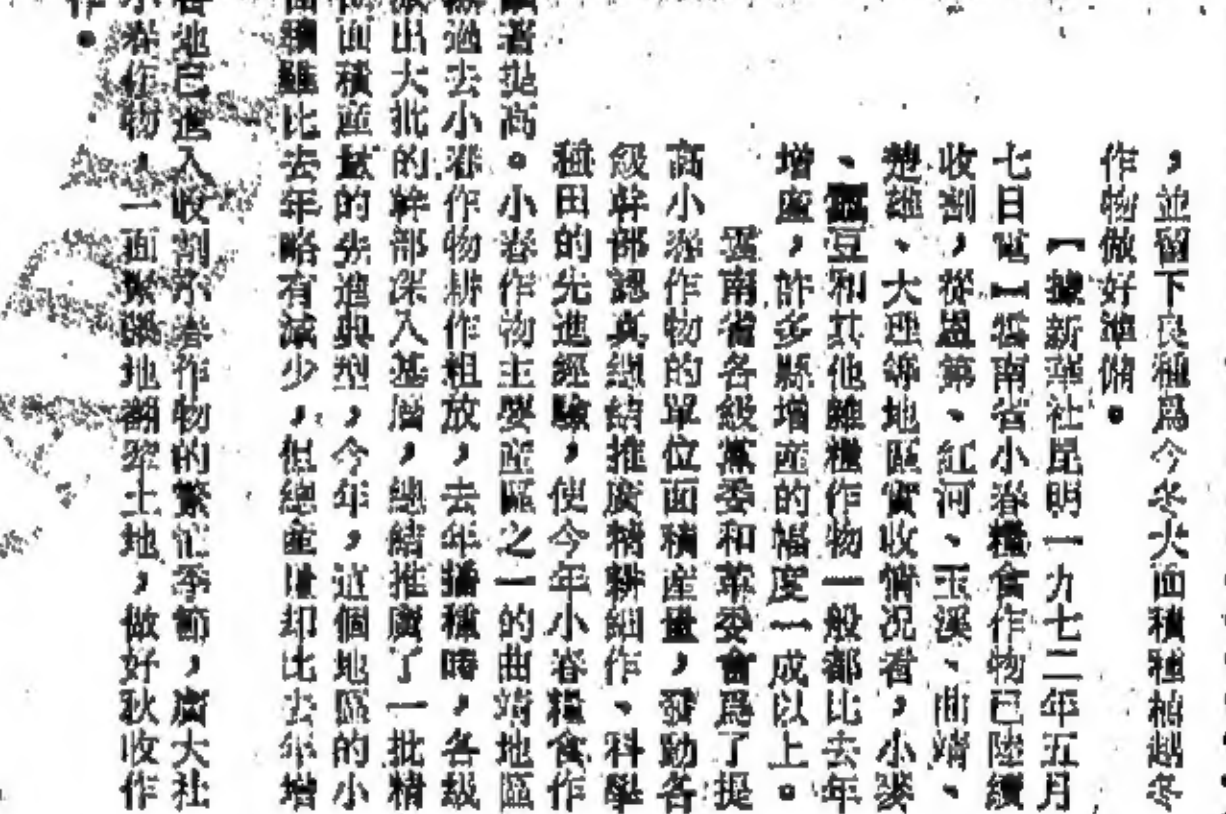 ，並留下良種爲今冬大面積種植越冬
作物做好準備。
【據新華社昆明一九七二年五月
七日電】雲南省小春糧食作物已陸續
收割，從思茅、紅河、玉溪、曲靖、
楚雄、大理等地區實收情况看，小麥
、豆和其他雜糧作物一般都比去年
增產，許多縣增産的幅度一成以上。
雲南省各級黨委和革委會爲了提
高小春作物的單位面積産量，發動各
級幹部認真總結推廣精耕細作、科學
種田的先進經驗，使今年小春糧食作
著提高。小春作物主要産區之一的曲靖地區
過去小春作物耕作粗放，去年播種時，各級
出大批的幹部深入基層，總結推廣了一批精
面積産量的先進典型，今年，這個地區的小
積雖比去年略有減少，但總産量却比去年增
地已進入收割小春作物的繁忙季節，廣大社
小春作物，一面緊張地翻犁土地，做好秋收作
。